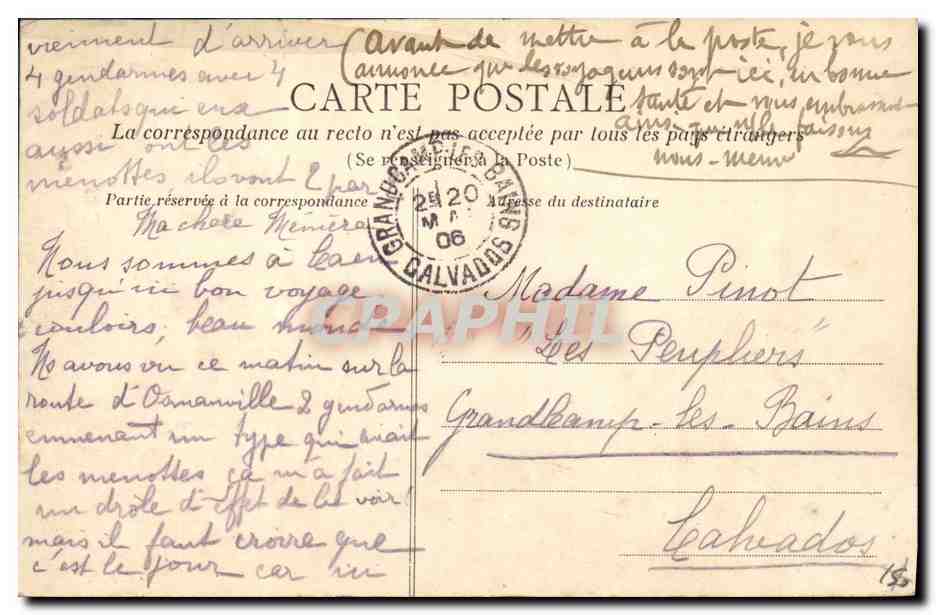 vienment d'arriver
4 gendarmes avec 4
soldats qui eux
aussi ont les
menottes ils vont 2 par
(Avant de mettre à la poste, je vous
annonce que les voyageurs sont ici, en bonne
santé et vous embrassent
ainsi que nous le faisons
nous-même
CARTE POSTALE
La correspondance au recto n'est pas acceptée par tous les pays étrangers
(Se renseigner à la Poste)
Partie réservée à la correspondance
Adresse du destinataire
GRANDCAMP-LES-BAINS
20
MAI
06
CALVADOS
Ma chere Mémère
Nous sommes à Caen
jusqu'ici bon voyage
couloirs, beau monde
Ns avons vu ce matin sur la
route d'Osmanville 2 gendarmes
emmenant un type qui avait
les menottes ça m'a fait
un drôle d'effet de le voir!
mais il faut croire que
c'est le jour car ici
Madame Pinot
"Les Peupliers"
Grandcamp-les-Bains
Calvados
CPARAPHIL